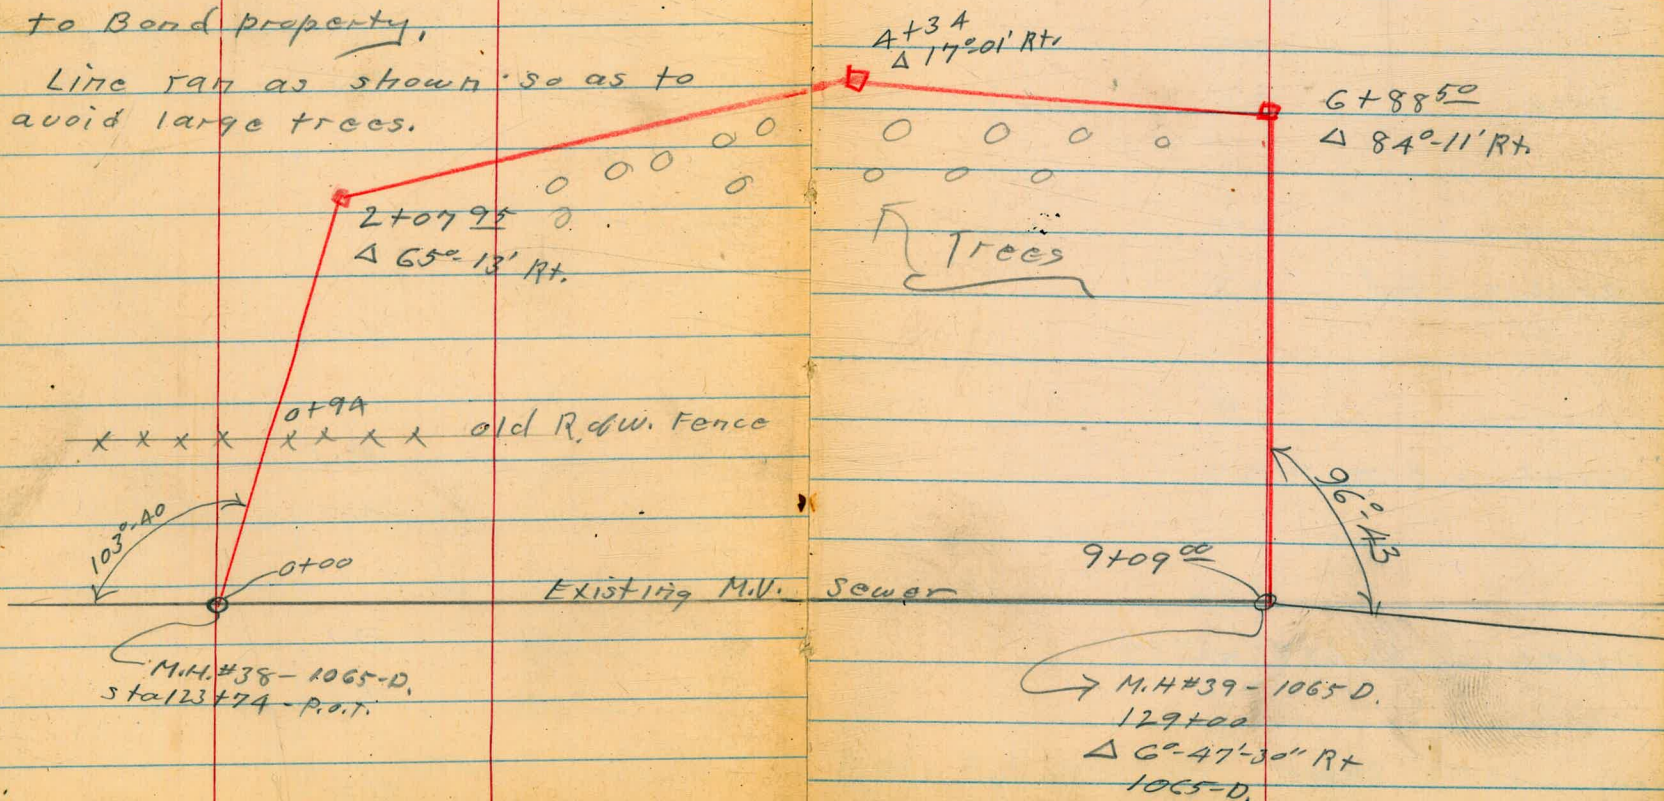 to Bond property.
Line ran as shown so as to
avoid large trees.
4+34
Δ 17°-01' Rt.
6+88 50
Δ 84°-11' Rt.
2+07 95
Δ 65°-13' Rt.
Trees
0+94
old R.of W. Fence
103°-40
96°-43
0+00
9+09 00
Existing M.V. Sewer
M.H.#38-1065-D.
sta 123+74-P.O.T.
M.H#39-1065 D.
129+00
Δ 6°-47'-30" Rt
1065-D.